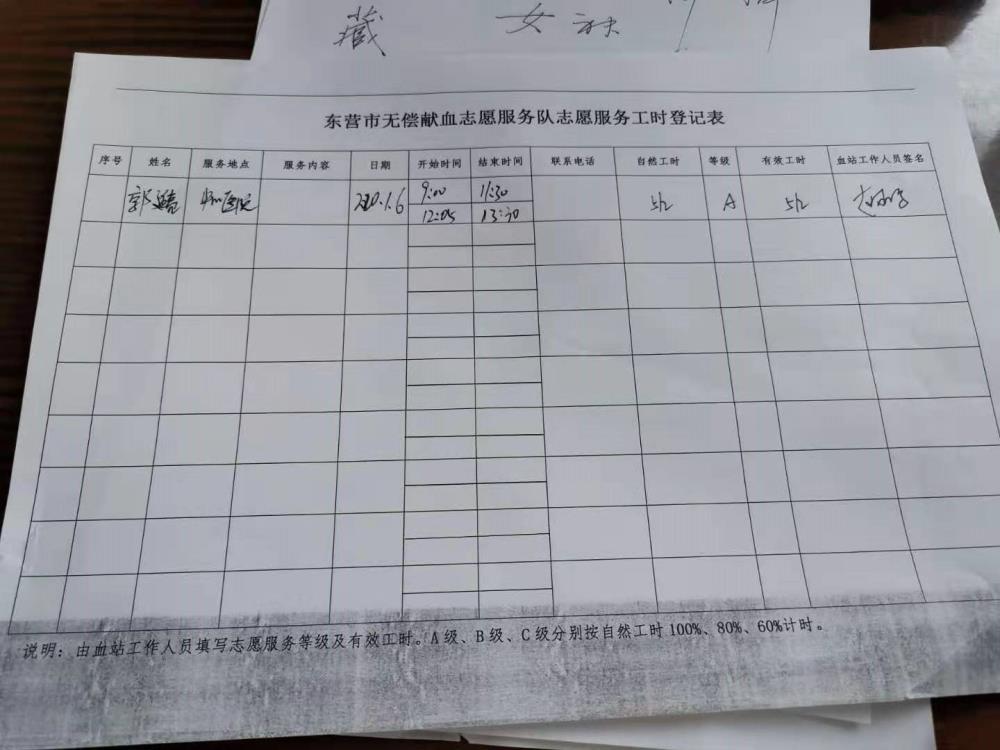 藏 女
东营市无偿献血志愿服务队志愿服务工时登记表
序号 姓名 服务地点 服务内容 日期 开始时间 结束时间 联系电话 自然工时 等级 有效工时 血站工作人员签名
郭 9:00 11:30
5h A 5h
12:05 13:30
说明：由血站工作人员填写志愿服务等级及有效工时。A级、B级、C级分别按自然工时100%、80%、60%计时。